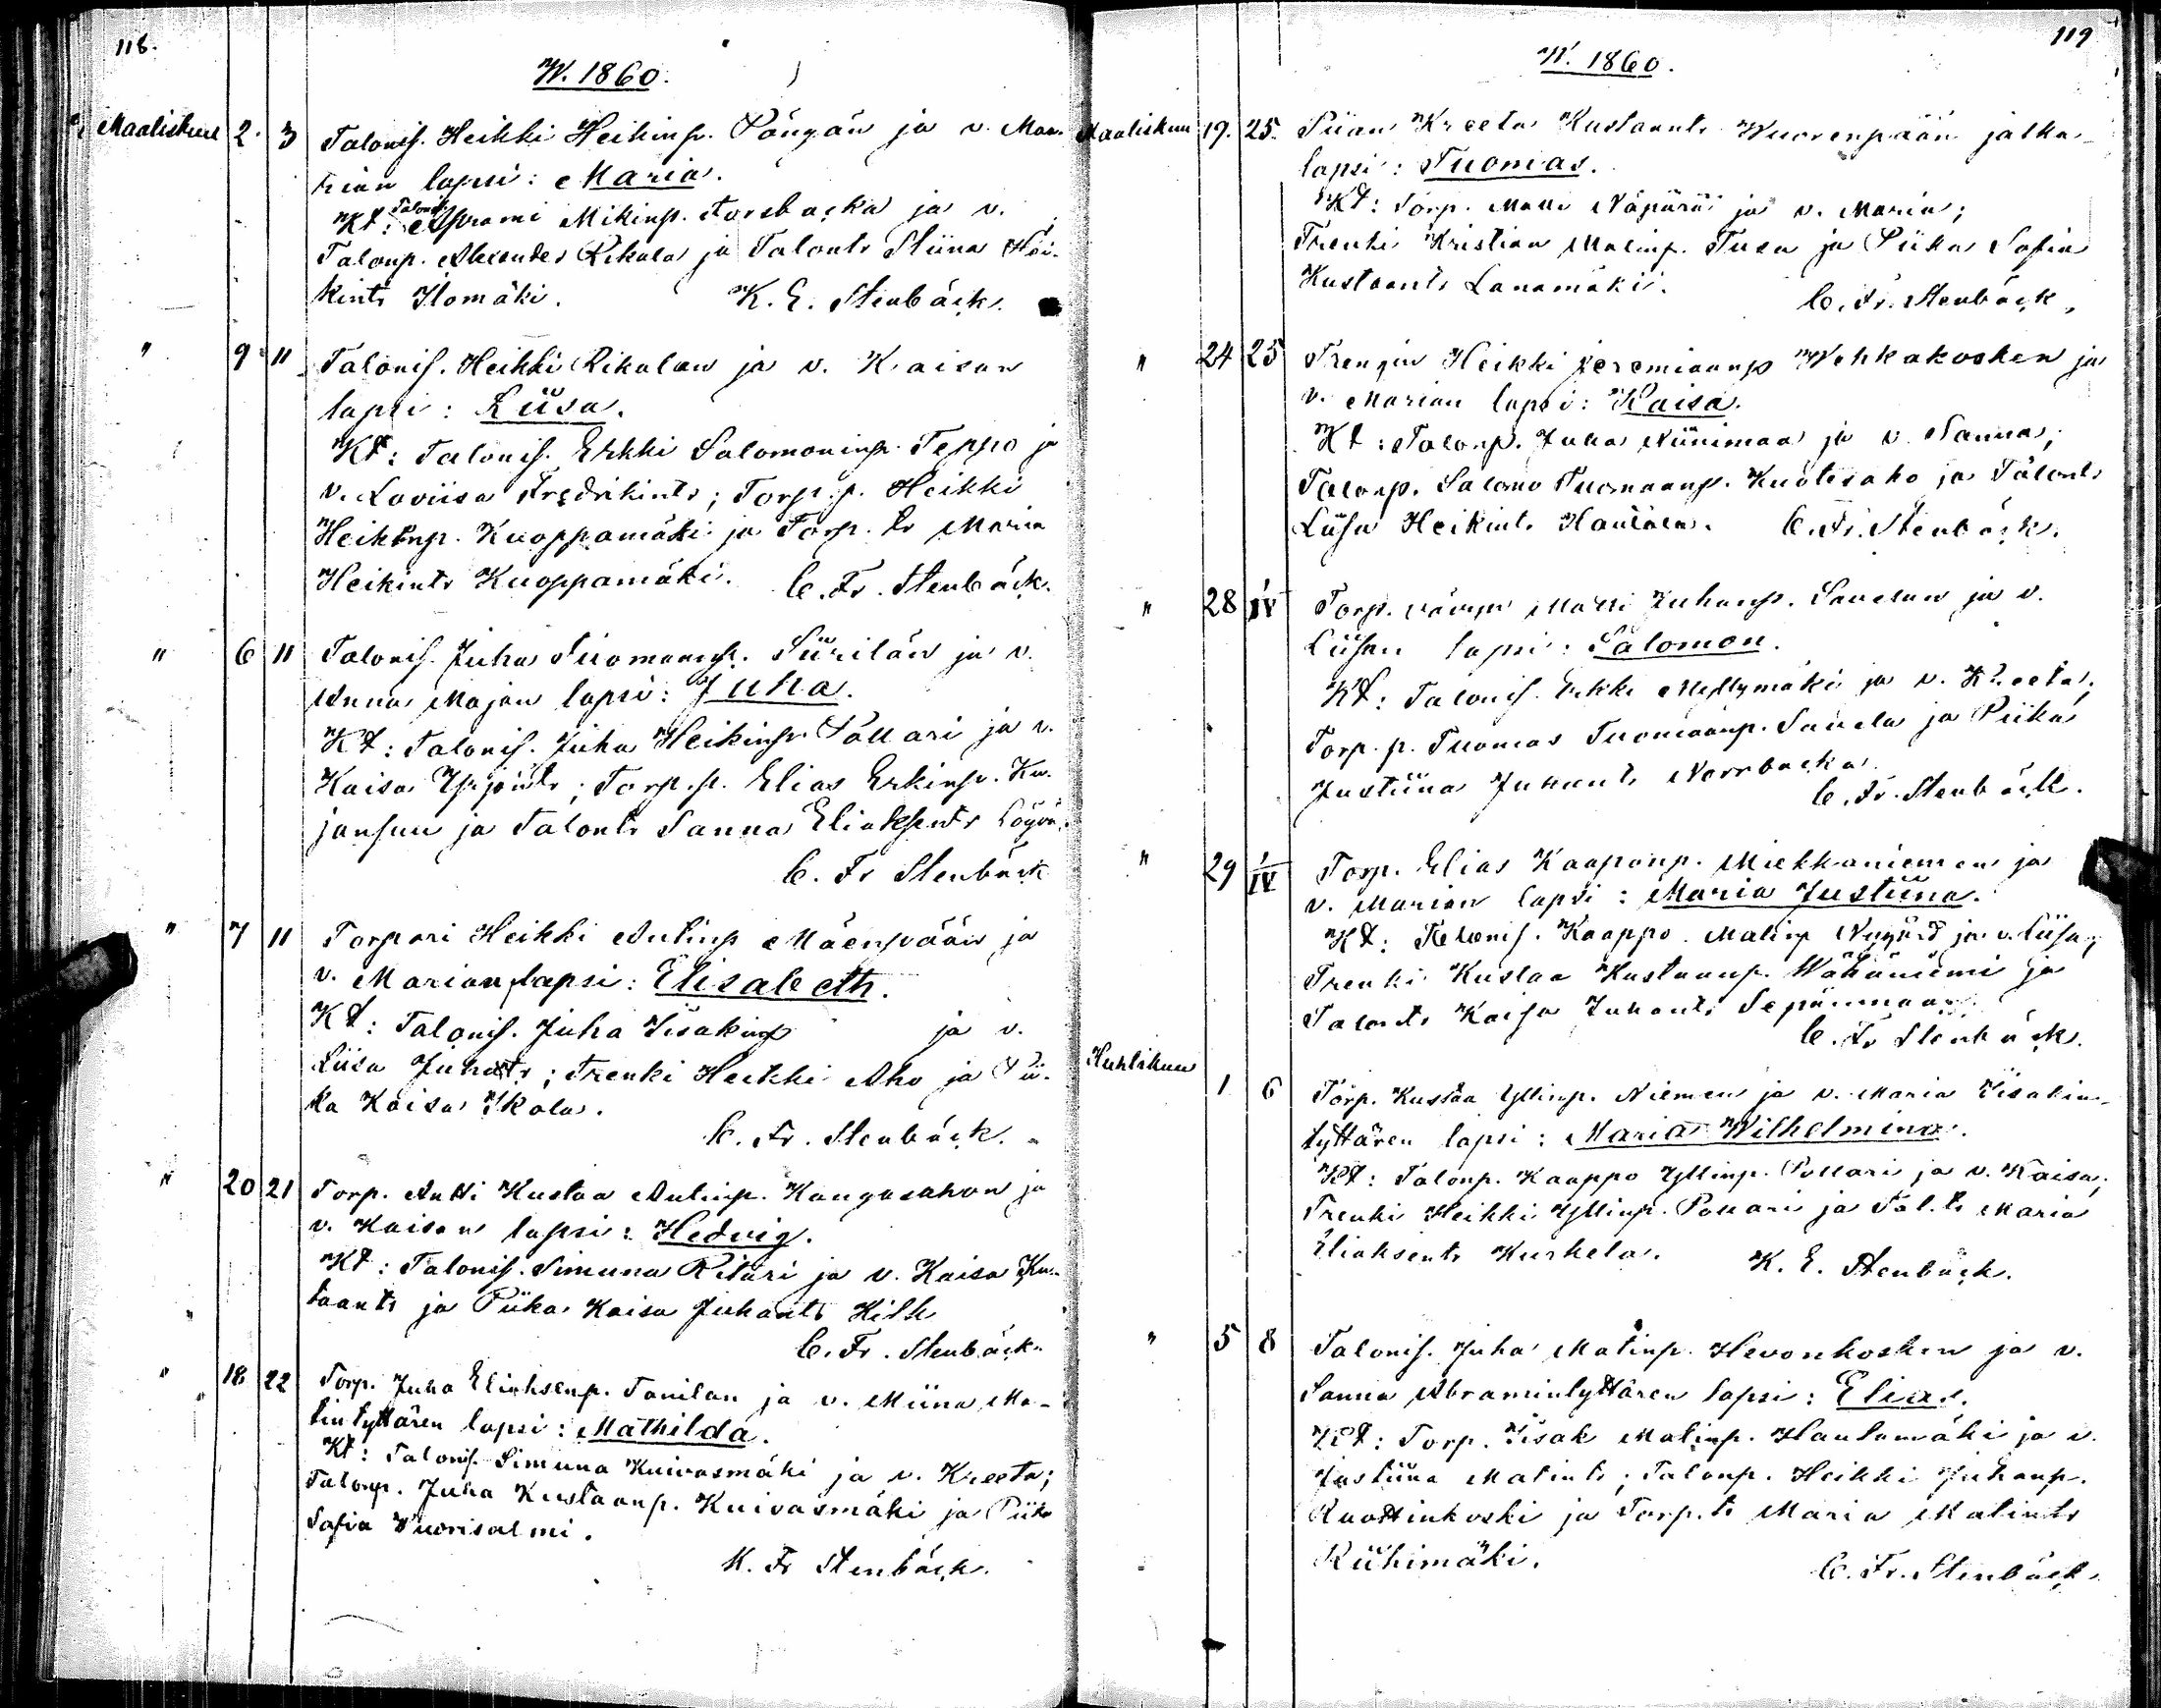 118.
W. 1860.
Maaliskuu 2. 3 Talonis. Heikki Heikinp. Pöngän ja v. Maa-
rian lapsi: Maria.
Kt: Talonis. Aprami Mikinp. Forsbacka ja v.
Talonp. Alexander Rikala ja Talontr Stiina Hei-
kintr Ilomäki. K. E. Stenbäck.
" 9 11 Talonis. Heikki Rikalan ja v. Kaisan
lapsi: Liisa.
Kt: Talonis. Erkki Salomoninp. Teppo ja
v. Loviisa Fredrikintr; Torp. p. Heikki
Heikinp. Kuoppamäki ja Torp. tr Maria
Heikintr Kuoppamäki. C. Fr. Stenbäck.
" 6 11 Talonis. Juha Tuomaanp. Siirilän ja v.
Anna Majan lapsi: Juha.
Kt: Talonis. Juha Heikinp. Pollari ja v.
Kaisa Yrjöintr; Torp. p. Elias Erkinp. Ka-
janpuu ja Talontr Sanna Eliaksentr
C. Fr Stenbäck
" 7 11 Torpari Heikki Antinp Mäenpään ja
v. Marian lapsi: Elisabeth.
Kt: Talonis. Juha Iisakinp ja v.
Liisa Juhatr; Trenki Heikki Aho ja Pii-
ka Kaisa Ikola.
C. Fr. Stenbäck.
" 20 21 Torp. Antti Kustaa Antinp. Kangasahon ja
v. Kaisan lapsi: Hedvig.
Kt: Talonis. Simuna Ritari ja v. Kaisa Kus-
taantr ja Piika Kaisa Juhantr Hilli
C. Fr. Stenbäck.
" 18 22 Torp. Juha Eliaksenp. Tanilan ja v. Miina Ma-
tintyttären lapsi: Mathilda.
Kt: Talonis. Simuna Kuivasmäki ja v. Kreeta;
Talonp. Juha Kustaanp. Kuivasmäki ja Piika
Sofia Vuorisalmi.
K. Fr Stenbäck.
119
W. 1860.
Maaliskuu 19. 25. Piian Kreeta Kustaantr Wuorenpään jalka-
lapsi: Tuomas.
Kt: Torp. Matti Näpärä ja v. Maria;
Trenki Kristian Matinp. Tusa ja Piika Sofia
Kustaantr Lanamäki. C. Fr. Stenbäck.
" 24 25 Trengin Heikki Jeremiaanp Wehkakosken ja
v. Marian lapsi: Kaisa.
Kt: Talonp. Juha Niinimaa ja v. Sanna;
Talonp. Salomo Tuomaanp. Kuotesaho ja Talontr
Liisa Heikintr Hautala. C. Fr. Stenbäck.
" 28 1/IV Torp. vävyn Matti Juhanp. Saucelan ja v.
Liisan lapsi: Salomon.
Kt: Talonis. Erkki Myllymäki ja v. Kreeta;
Torp. p. Tuomas Tuomaanp. Sauela ja Piika
Justiina Juhantr Norrbacka.
C. Fr. Stenbäck.
" 29 1/IV Torp. Elias Kaaponp. Miekkaniemen ja
v. Marian lapsi: Maria Justiina.
Kt: Talonis. Kaappo Matinp Nygård ja v. Liisa;
Trenki Kustaa Kustaanp. Wähäniemi ja
Talontr Kaisa Juhantr Sepänmaa.
C. Fr Stenbäck.
Huhtikuu 1 6 Torp. Kustaa Yllinp. Niemen ja v. Maria Iisakin-
tyttären lapsi: Maria Wilhelmina.
Kt: Talonp. Kaappo Yllinp. Pollari ja v. Kaisa;
Trenki Heikki Yllinp. Pollari ja Tal. tr Maria
Eliaksentr Kurkela. K. E. Stenbäck.
" 5 8 Talonis. Juha Matinp. Hevonkosken ja v.
Sanna Abramintyttären lapsi: Elias.
Kt: Torp. Iisak Matinp. Hautamäki ja v.
Justiina Matintr; Talonp. Heikki Juhanp.
Ruottinkoski ja Torp. tr Maria Matintr
Riihimäki. C. Fr. Stenbäck.